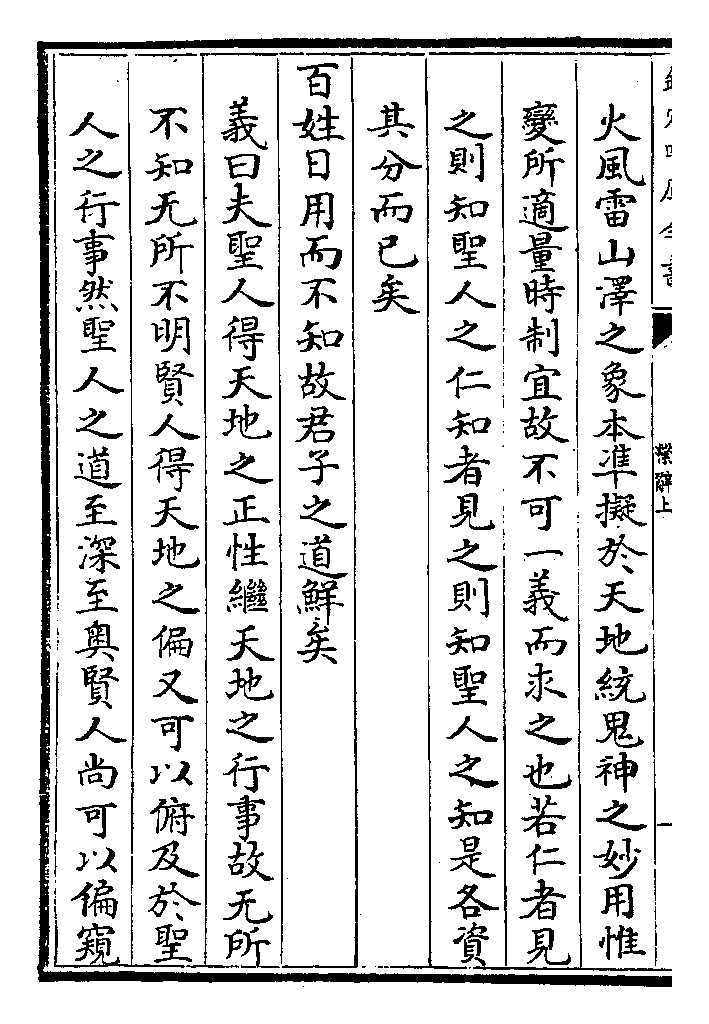 繫辭上
火風雷山澤之象本凖擬於天地統鬼神之妙用惟
變所適量時制宜故不可一義而求之也若仁者見
之則知聖人之仁知者見之則知聖人之知是各資
其分而已矣
百姓日用而不知故君子之道鮮矣
義曰夫聖人得天地之正性繼天地之行事故无所
不知无所不明賢人得天地之偏又可以俯及於聖
人之行事然聖人之道至深至奥賢人尚可以偏窺